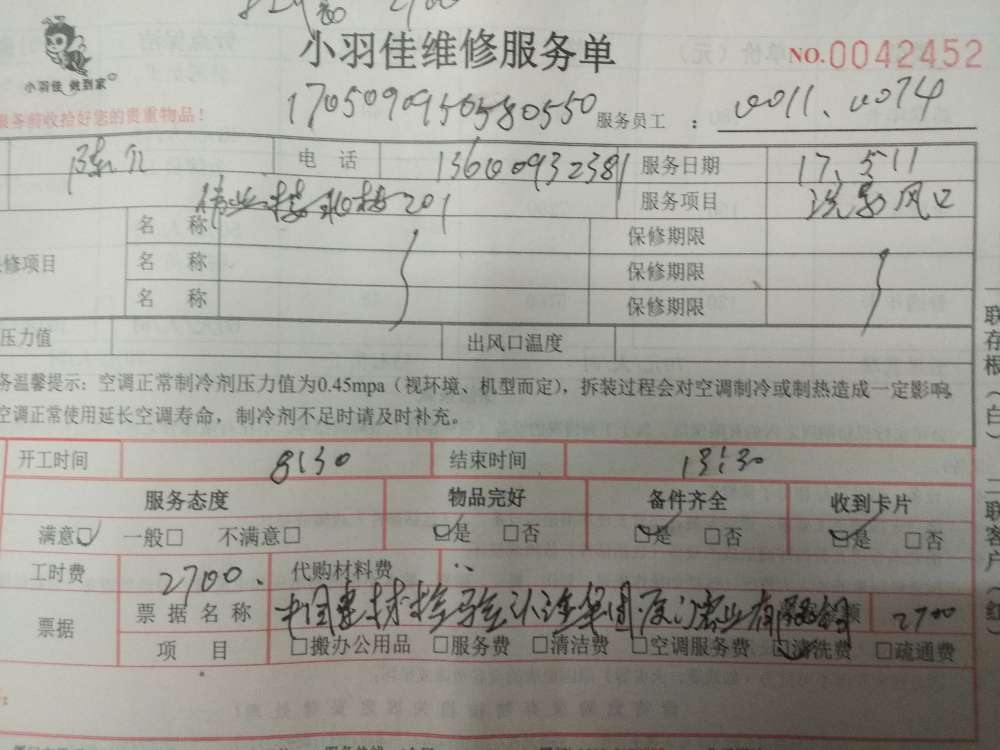 2700
小羽佳维修服务单 NO.0042452
小羽佳 做到家
服务前收拾好您的贵重物品！
1705090950580550 服务员工 ： 0011、0074
电 话 13600932381 服务日期 17.5.11
201 服务项目 洗 风口
名 称 保修期限
保修项目 名 称 保修期限
名 称 保修期限
压力值 出风口温度
务温馨提示：空调正常制冷剂压力值为0.45mpa（视环境、机型而定），拆装过程会对空调制冷或制热造成一定影响
空调正常使用延长空调寿命，制冷剂不足时请及时补充。
开工时间 8:30 结束时间 13:30
服务态度 物品完好 备件齐全 收到卡片
满意☑ 一般□ 不满意□ ☑是 □否 ☑是 □否 ☑是 □否
工时费 2700. 代购材料费
票据 票据名称 中国建材检验认证集团厦门宏业有限公司 额 2700
项 目 □搬办公用品 □服务费 □清洁费 □空调服务费 ☑清洗费 □疏通费
一联存根（白） 二联客户（红）